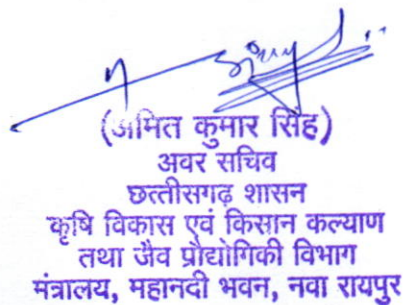 (अमित कुमार सिंह)
अवर सचिव
छत्तीसगढ़ शासन
कृषि विकास एवं किसान कल्याण
तथा जैव प्रौद्योगिकी विभाग
मंत्रालय, महानदी भवन, नवा रायपुर